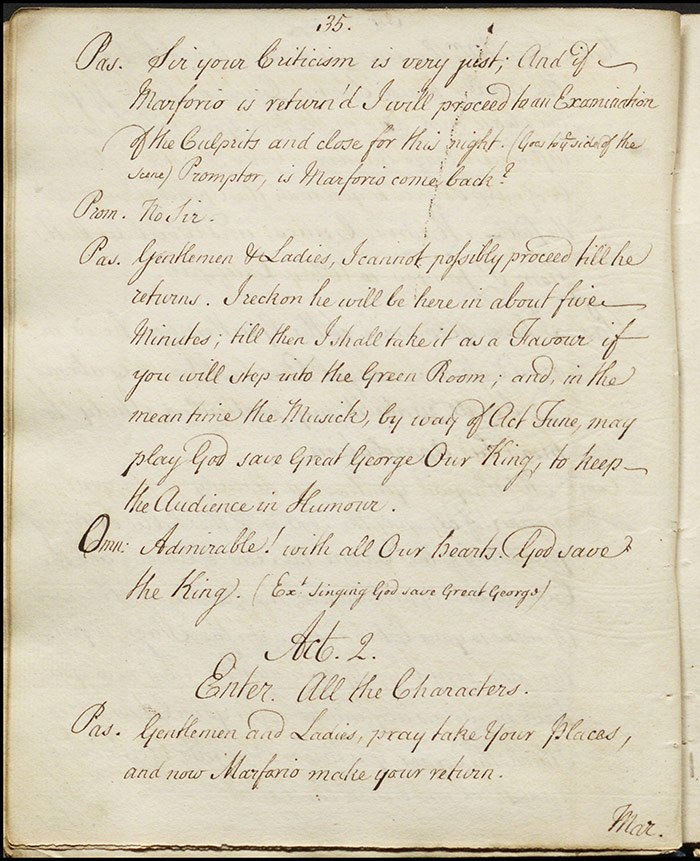 35.
Pas. Sir your Criticism is very just; And if
Marforio is return'd I will proceed to an Examination
of the Culprits and close for this night. (Goes to ye side of the
scene) Promptor, is Marforio come back?
Prom. No Sir.
Pas. Gentlemen & Ladies, I cannot possibly proceed till he
returns. I reckon he will be here in about five
Minutes; till then I shall take it as a Favour if
you will step into the Green Room; and, in the
mean time the Musick, by way of Act Tune, may
play God save Great George Our King, to keep
the Audience in Humour.
Omn: Admirable! with all Our hearts. God save
the King. (Ext. singing God save Great George)
Act. 2.
Enter. All the Characters.
Pas. Gentlemen and Ladies, pray take Your Places,
and now Marforio make your return.
Mar.